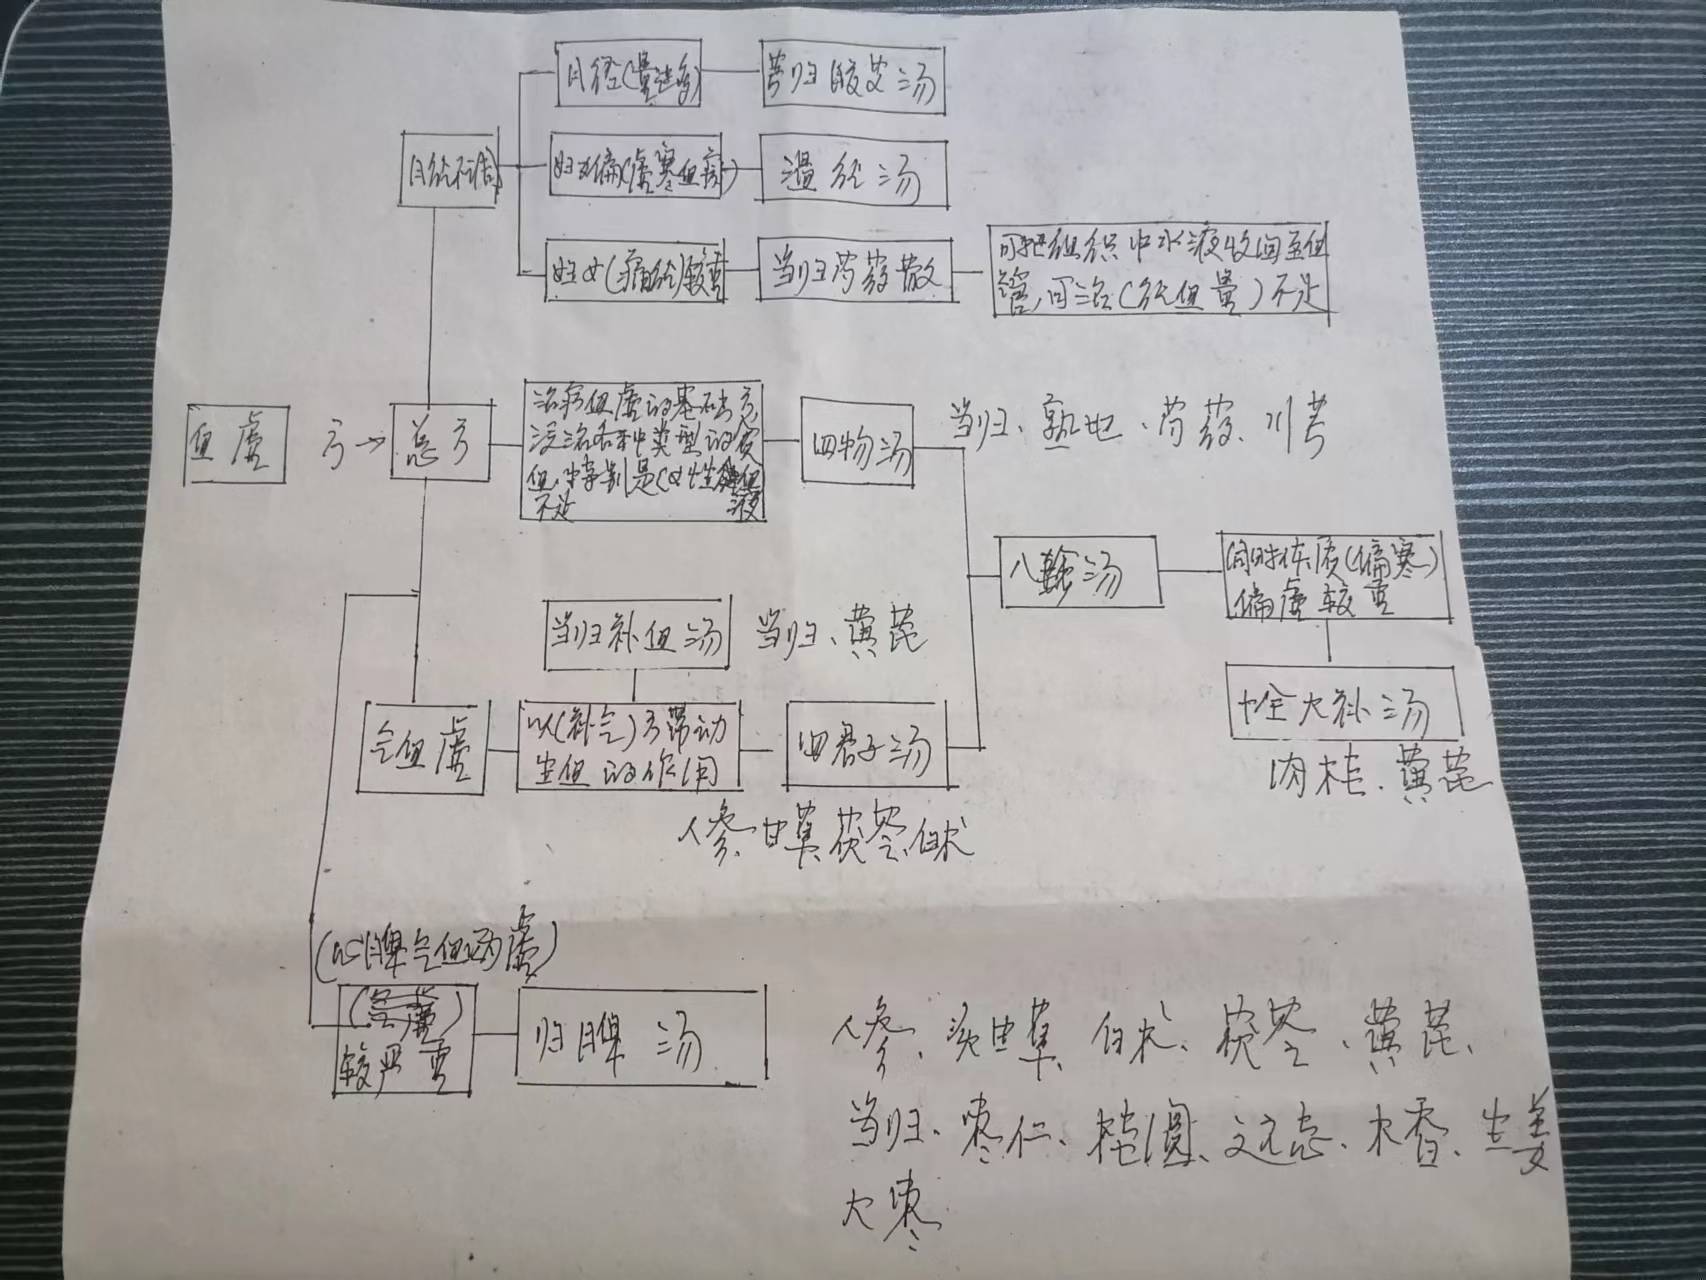 月经(量过多)
芎归胶艾汤
月经不调
妇女偏(虚寒血瘀)
温经汤
妇女(痛经)较重
当归芍药散
可把组织中水液收回至血
管,可治(经血量)不足
血虚
方→
总方
治疗血虚的基础方
没治各种类型的贫
血,特别是
不足
四物汤
当归、熟地、芍药、川芎
八珍汤
同时体质(偏寒)
偏虚较重
当归补血汤
当归、黄芪
十全大补汤
肉桂、黄芪
气血虚
以(补气)方带动
生血的作用
四君子汤
人参、甘草、茯苓、白术
(心脾气血两虚)
(气虚)
较严重
归脾汤
人参、炙甘草、白术、茯苓、黄芪、
当归、枣仁、桂圆、远志、木香、生姜
大枣